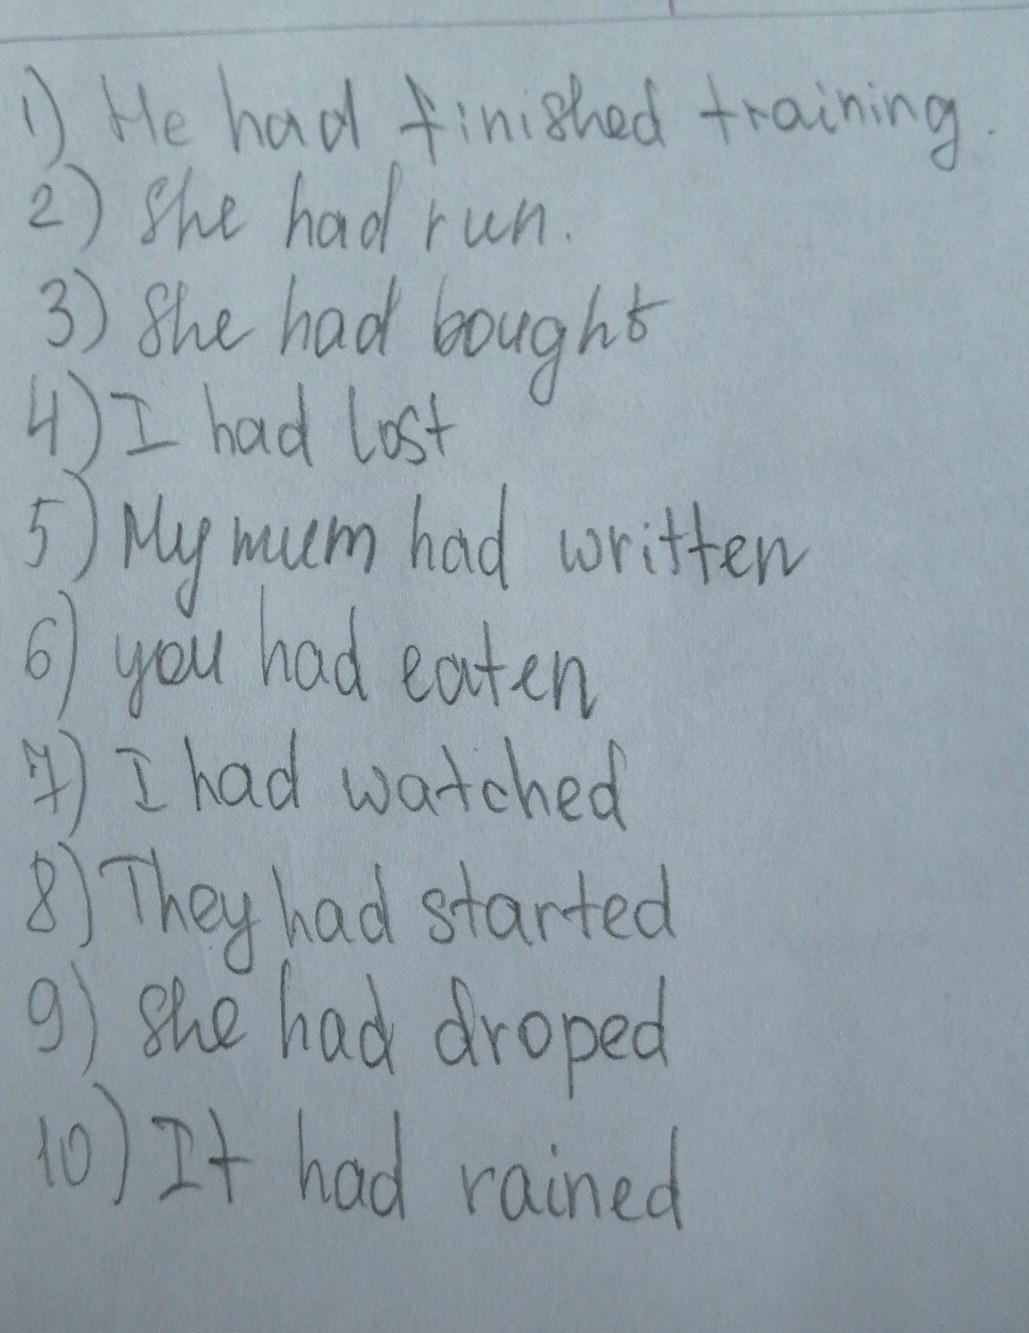 1) He had finished training.
2) She had run.
3) She had bought
4) I had lost
5) My mum had written
6) you had eaten
7) I had watched
8) They had started
9) She had droped
10) It had rained